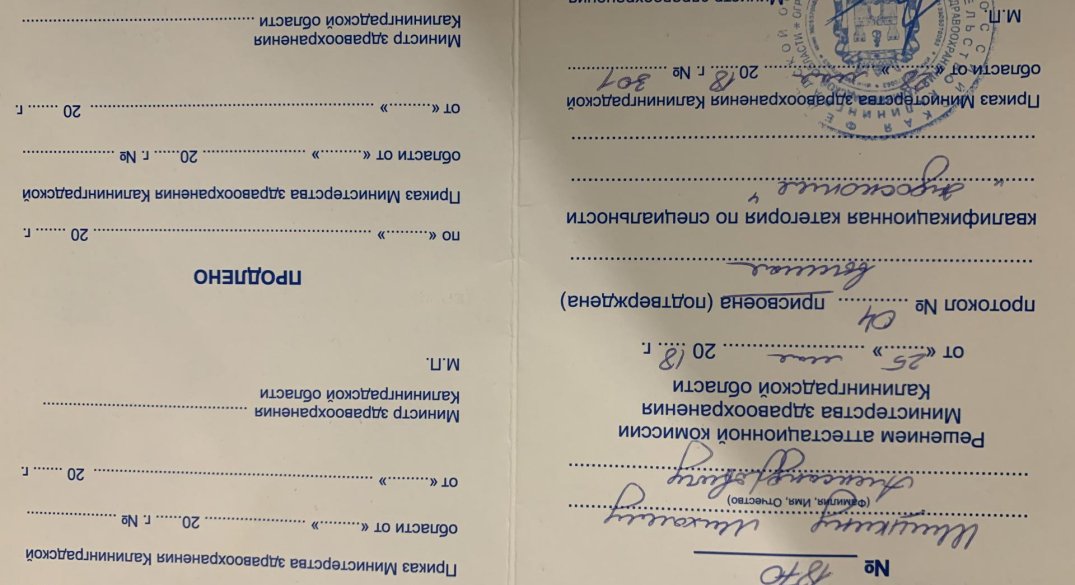 № 1870
Шишкину Михаилу
(Фамилия, Имя, Отчество)
Александровичу
Решением аттестационной комиссии
Министерства здравоохранения
Калининградской области
от «25» мая 2018 г.
протокол № 04 присвоена (подтверждена)
высшая
квалификационная категория по специальности
"эндоскопия"
Приказ Министерства здравоохранения Калининградской
области от «28» мая 2018 г. № 301
М.П.
Приказ Министерства здравоохранения Калининградской
области от «.........» ..................... 20...... г. № .....................
от «.........» ..................... 20 ...... г
Министр здравоохранения
Калининградской области .....................
М.П.
ПРОДЛЕНО
по «.........» ..................... 20 ...... г.
Приказ Министерства здравоохранения Калининградской
области от «.........» ..................... 20...... г. № .....................
от «.........» ..................... 20 ...... г
Министр здравоохранения
Калининградской области .....................